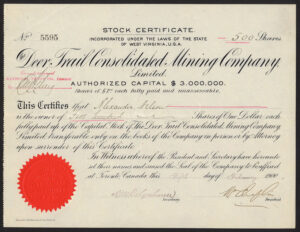 STOCK CERTIFICATE.
INCORPORATED UNDER THE LAWS OF THE STATE
OF WEST VIRGINIA, U.S.A.
No 5595
500 Shares
Deer Trail Consolidated Mining Company,
Limited.
AUTHORIZED CAPITAL $3,000,000.
Shares of $1.00 each fully paid and unassessable.
This Certifies that Alexander
is the owner of Five hundred Shares of One Dollar each
fully paid up of the Capital Stock of the Deer Trail Consolidated Mining Company
Limited, transferable only on the books of the Company in person or by Attorney
upon surrender of this Certificate.
In Witness whereof the President and Secretary have hereunto
set their names and caused the Seal of the Company to be affixed
at Toronto Canada this day of 1900
Secretary
President